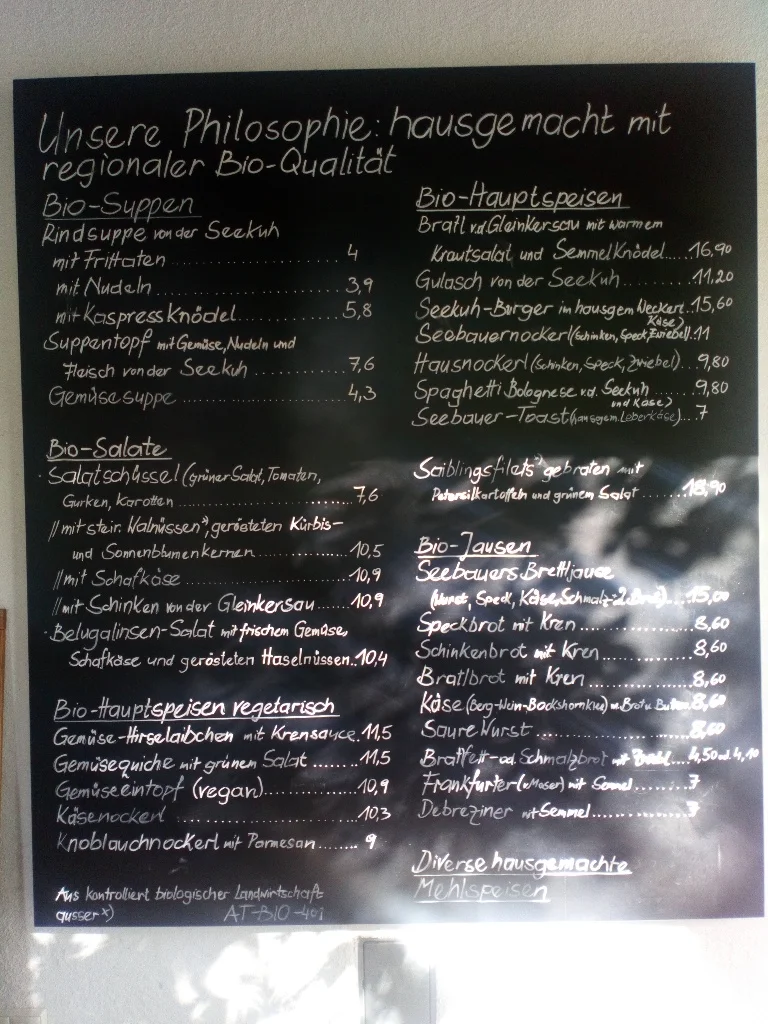 Unsere Philosophie: hausgemacht mit
regionaler Bio-Qualität
Bio-Suppen
Rindsuppe von der Seekuh
mit Frittaten.....................4
mit Nudeln.....................3,9
mit Kaspressknödel..............5,8
Suppentopf mit Gemüse, Nudeln und
Fleisch von der Seekuh............7,6
Gemüsesuppe.....................4,3
Bio-Salate
· Salatschüssel (grüner Salat, Tomaten,
Gurken, Karotten.....................7,6
//mit steir. Walnüssen*), gerösteten Kürbis-
und Sonnenblumenkernen............10,5
//mit Schafkäse.....................10,9
//mit Schinken von der Gleinkersau....10,9
· Belugalinsen-Salat mit frischem Gemüse,
Schafkäse und gerösteten Haselnüssen..10,4
Bio-Hauptspeisen vegetarisch
Gemüse-Hirselaibchen mit Krensauce.11,5
Gemüsequiche mit grünem Salat.......11,5
Gemüseeintopf (vegan)..............10,9
Käsenockerl.....................10,3
Knoblauchnockerl mit Parmesan......9
Aus kontrolliert biologischer Landwirtschaft
ausser *)
AT-BIO-401
Bio-Hauptspeisen
Bratl v.d. Gleinkersau mit warmem
Krautsalat und Semmelknödel....16,90
Gulasch von der Seekuh..........11,20
Seekuh-Burger im hausgem. Weckerl.15,60
Seebauernockerl (Schinken, Speck, Zwiebel, Käse)..11
Hausnockerl (Schinken, Speck, Zwiebel)...9,80
Spaghetti Bolognese v.d. Seekuh.......9,80
Seebauer-Toast (hausgem. Leberkäse und Käse)...7
Saiblingsfilets*) gebraten mit
Petersilkartoffeln und grünem Salat.......18,90
Bio-Jausen
Seebauers Brettljause
(Wurst, Speck, Käse, Schmalz-2 Brot)...15,00
Speckbrot mit Kren..............8,60
Schinkenbrot mit Kren...........8,60
Bratlbrot mit Kren..............8,60
Käse (Berg-Wein-Bockshornklee) m. Brot u. Butter.8,60
Saure Wurst.....................8,60
Bratlfett- od. Schmalzbrot mit...4,50 od. 4,10
Frankfurter (v. Moser) mit Semmel......7
Debreziner mit Semmel..............7
Diverse hausgemachte
Mehlspeisen